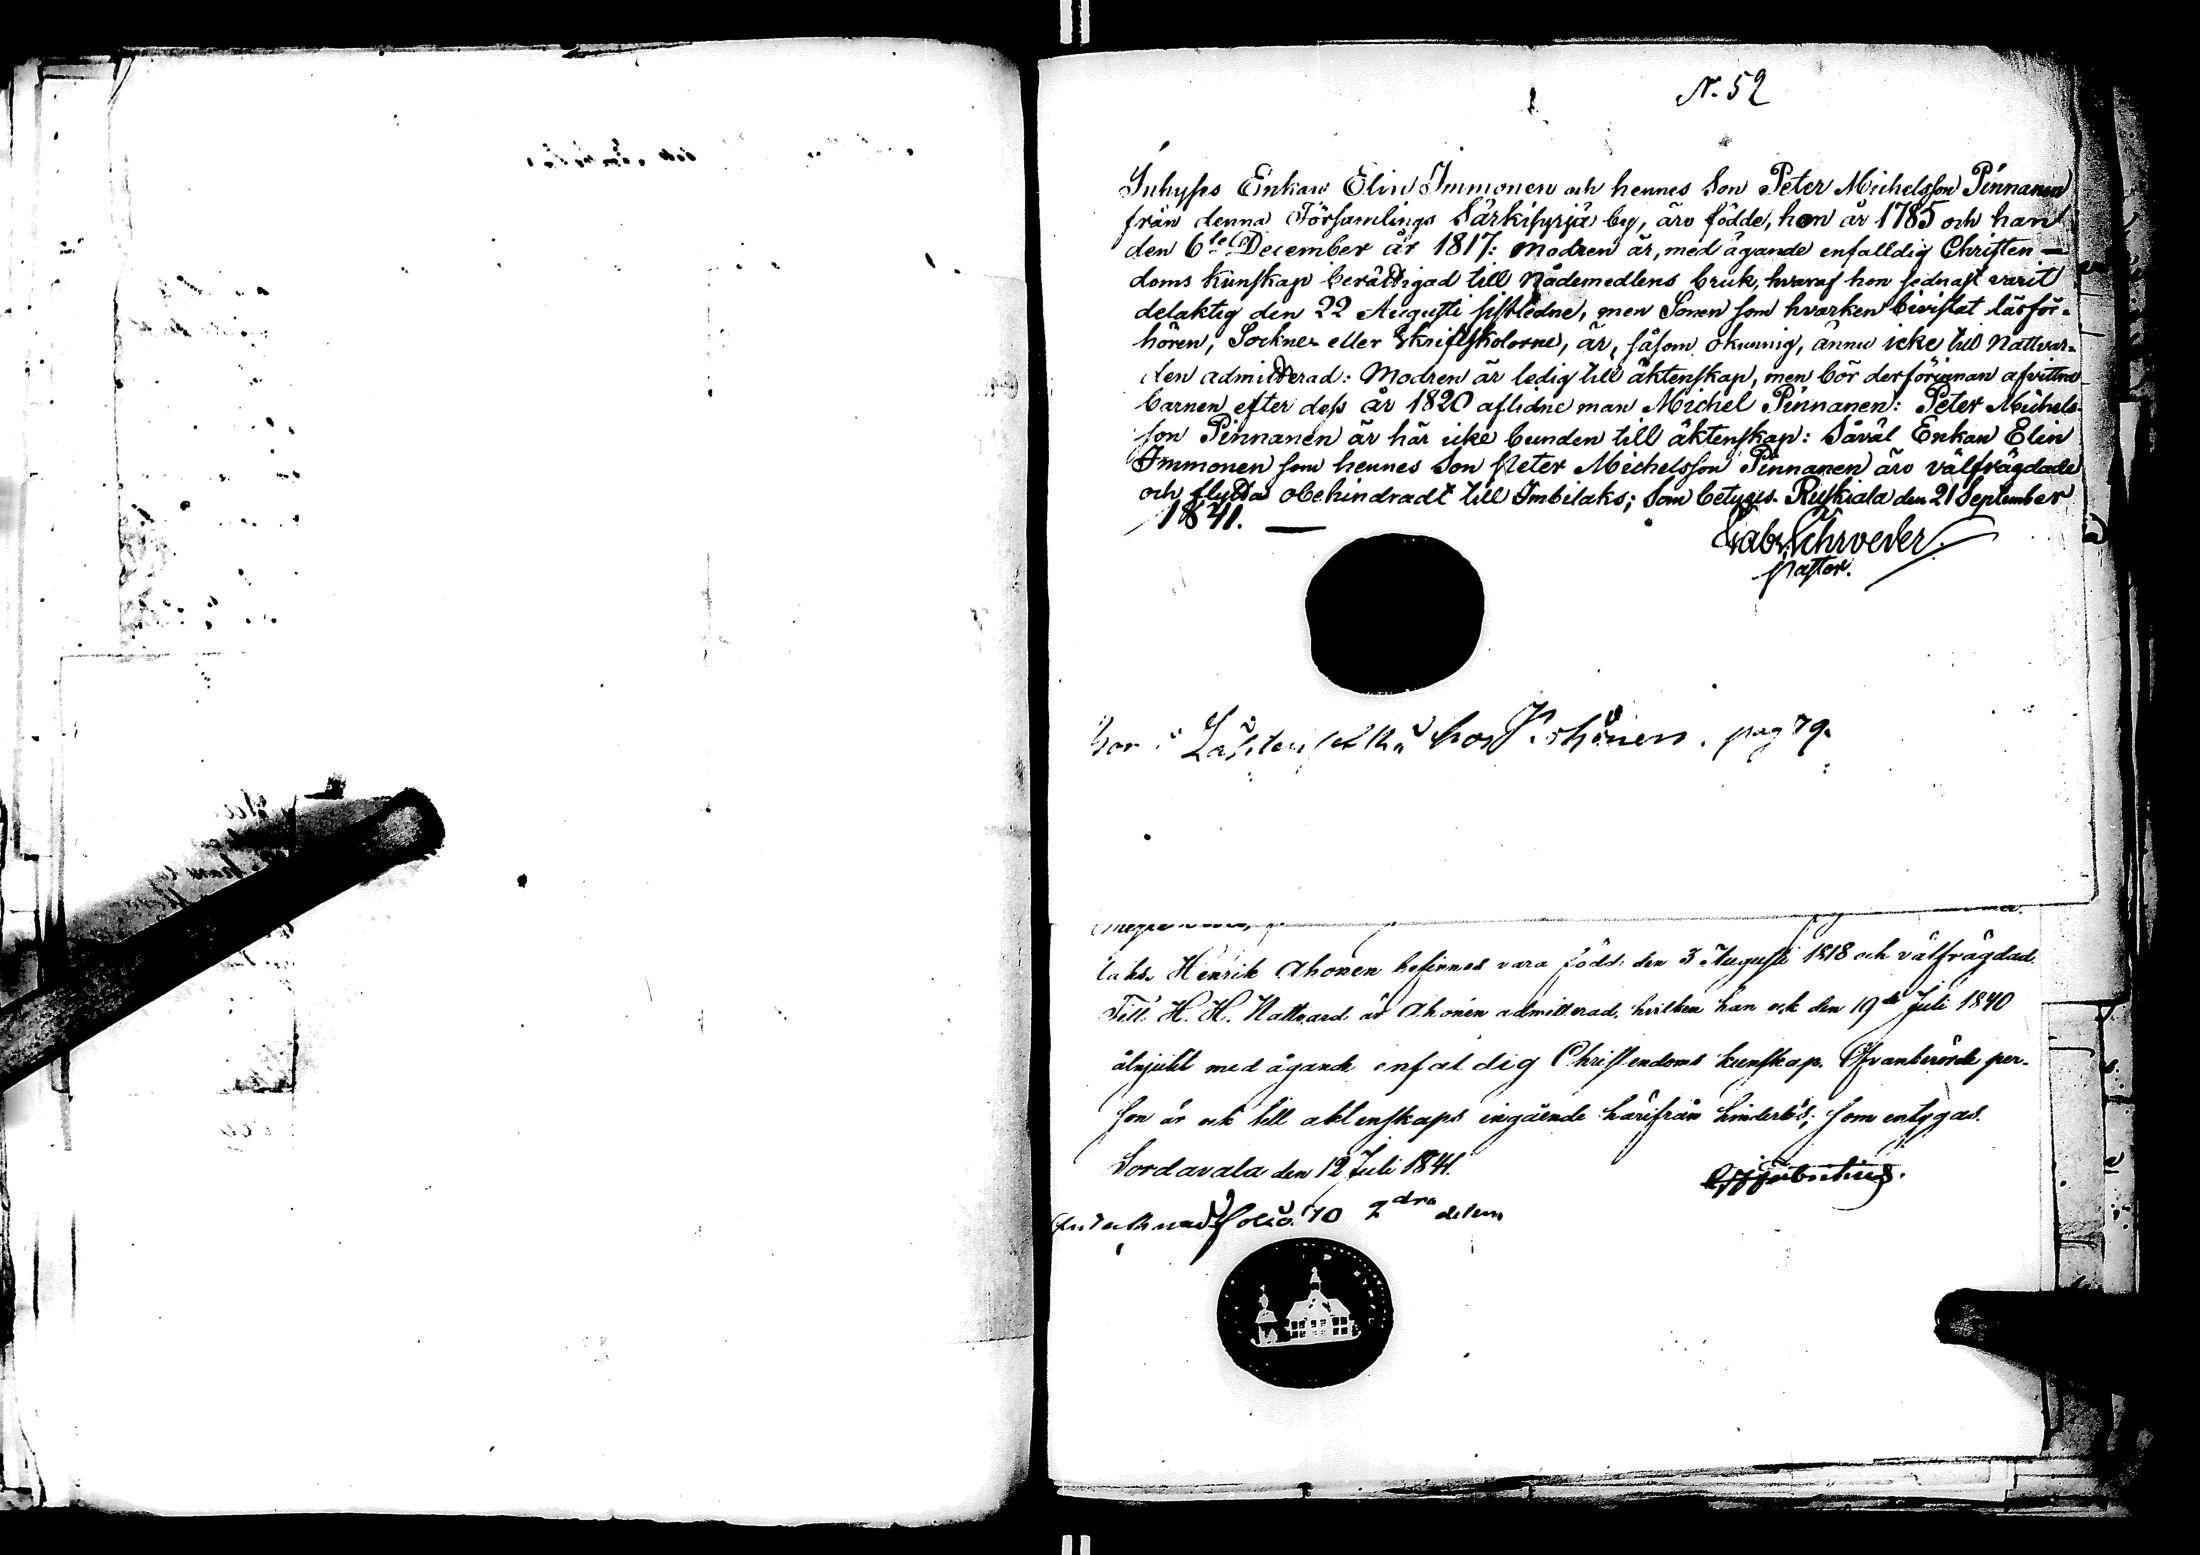 N. 52
Inhyses Enkan Elin Immonen och hennes Son Peter Michelsson Pinnanen
från denna Församlings Särkisyrjä by, äro födde, hon år 1785 och han
den 6te December år 1817: Modren är, med ägande enfalldig Christen-
doms kunskap berättigad till Nådemedlens bruk, hvaraf hon sednast varit
delaktig den 22 Augusti sistledne, men Sonen som hvarken bevistat läsför-
hören, Sockne- eller Skriftskolorne, är, såsom okunnig, ännu icke till Nattvar-
den admitterad: Modren är ledig till äktenskap, men bör derförinnan afvittra
barnen efter dess år 1820 aflidne man Michel Pinnanen: Peter Michels-
son Pinnanen är här icke bunden till äktenskap: Såväl Enkan Elin
Immonen som hennes Son Peter Michelsson Pinnanen äro välfrägdade
och flytta obehindradt till Imbilaks; Som betygas. Ruskiala den 21 September
1841.
Gabr. Schroeder
Pastor.
hos pag 79.
laks. Henrik Ahonen befinnes vara född den 3 Augusti 1818 och välfrägdad.
Till H. H. Nattvard är Ahonen admitterad, hvilken han ock den 19de Juli 1840
åtnjutit med ägande enfaldig Christendoms kunskap. Ofvanberörde per-
son är ock till äktenskaps ingående härifrån hinderlös; som intygas.
Sordavala den 12 Juli 1841.
folio 70 2dra delen